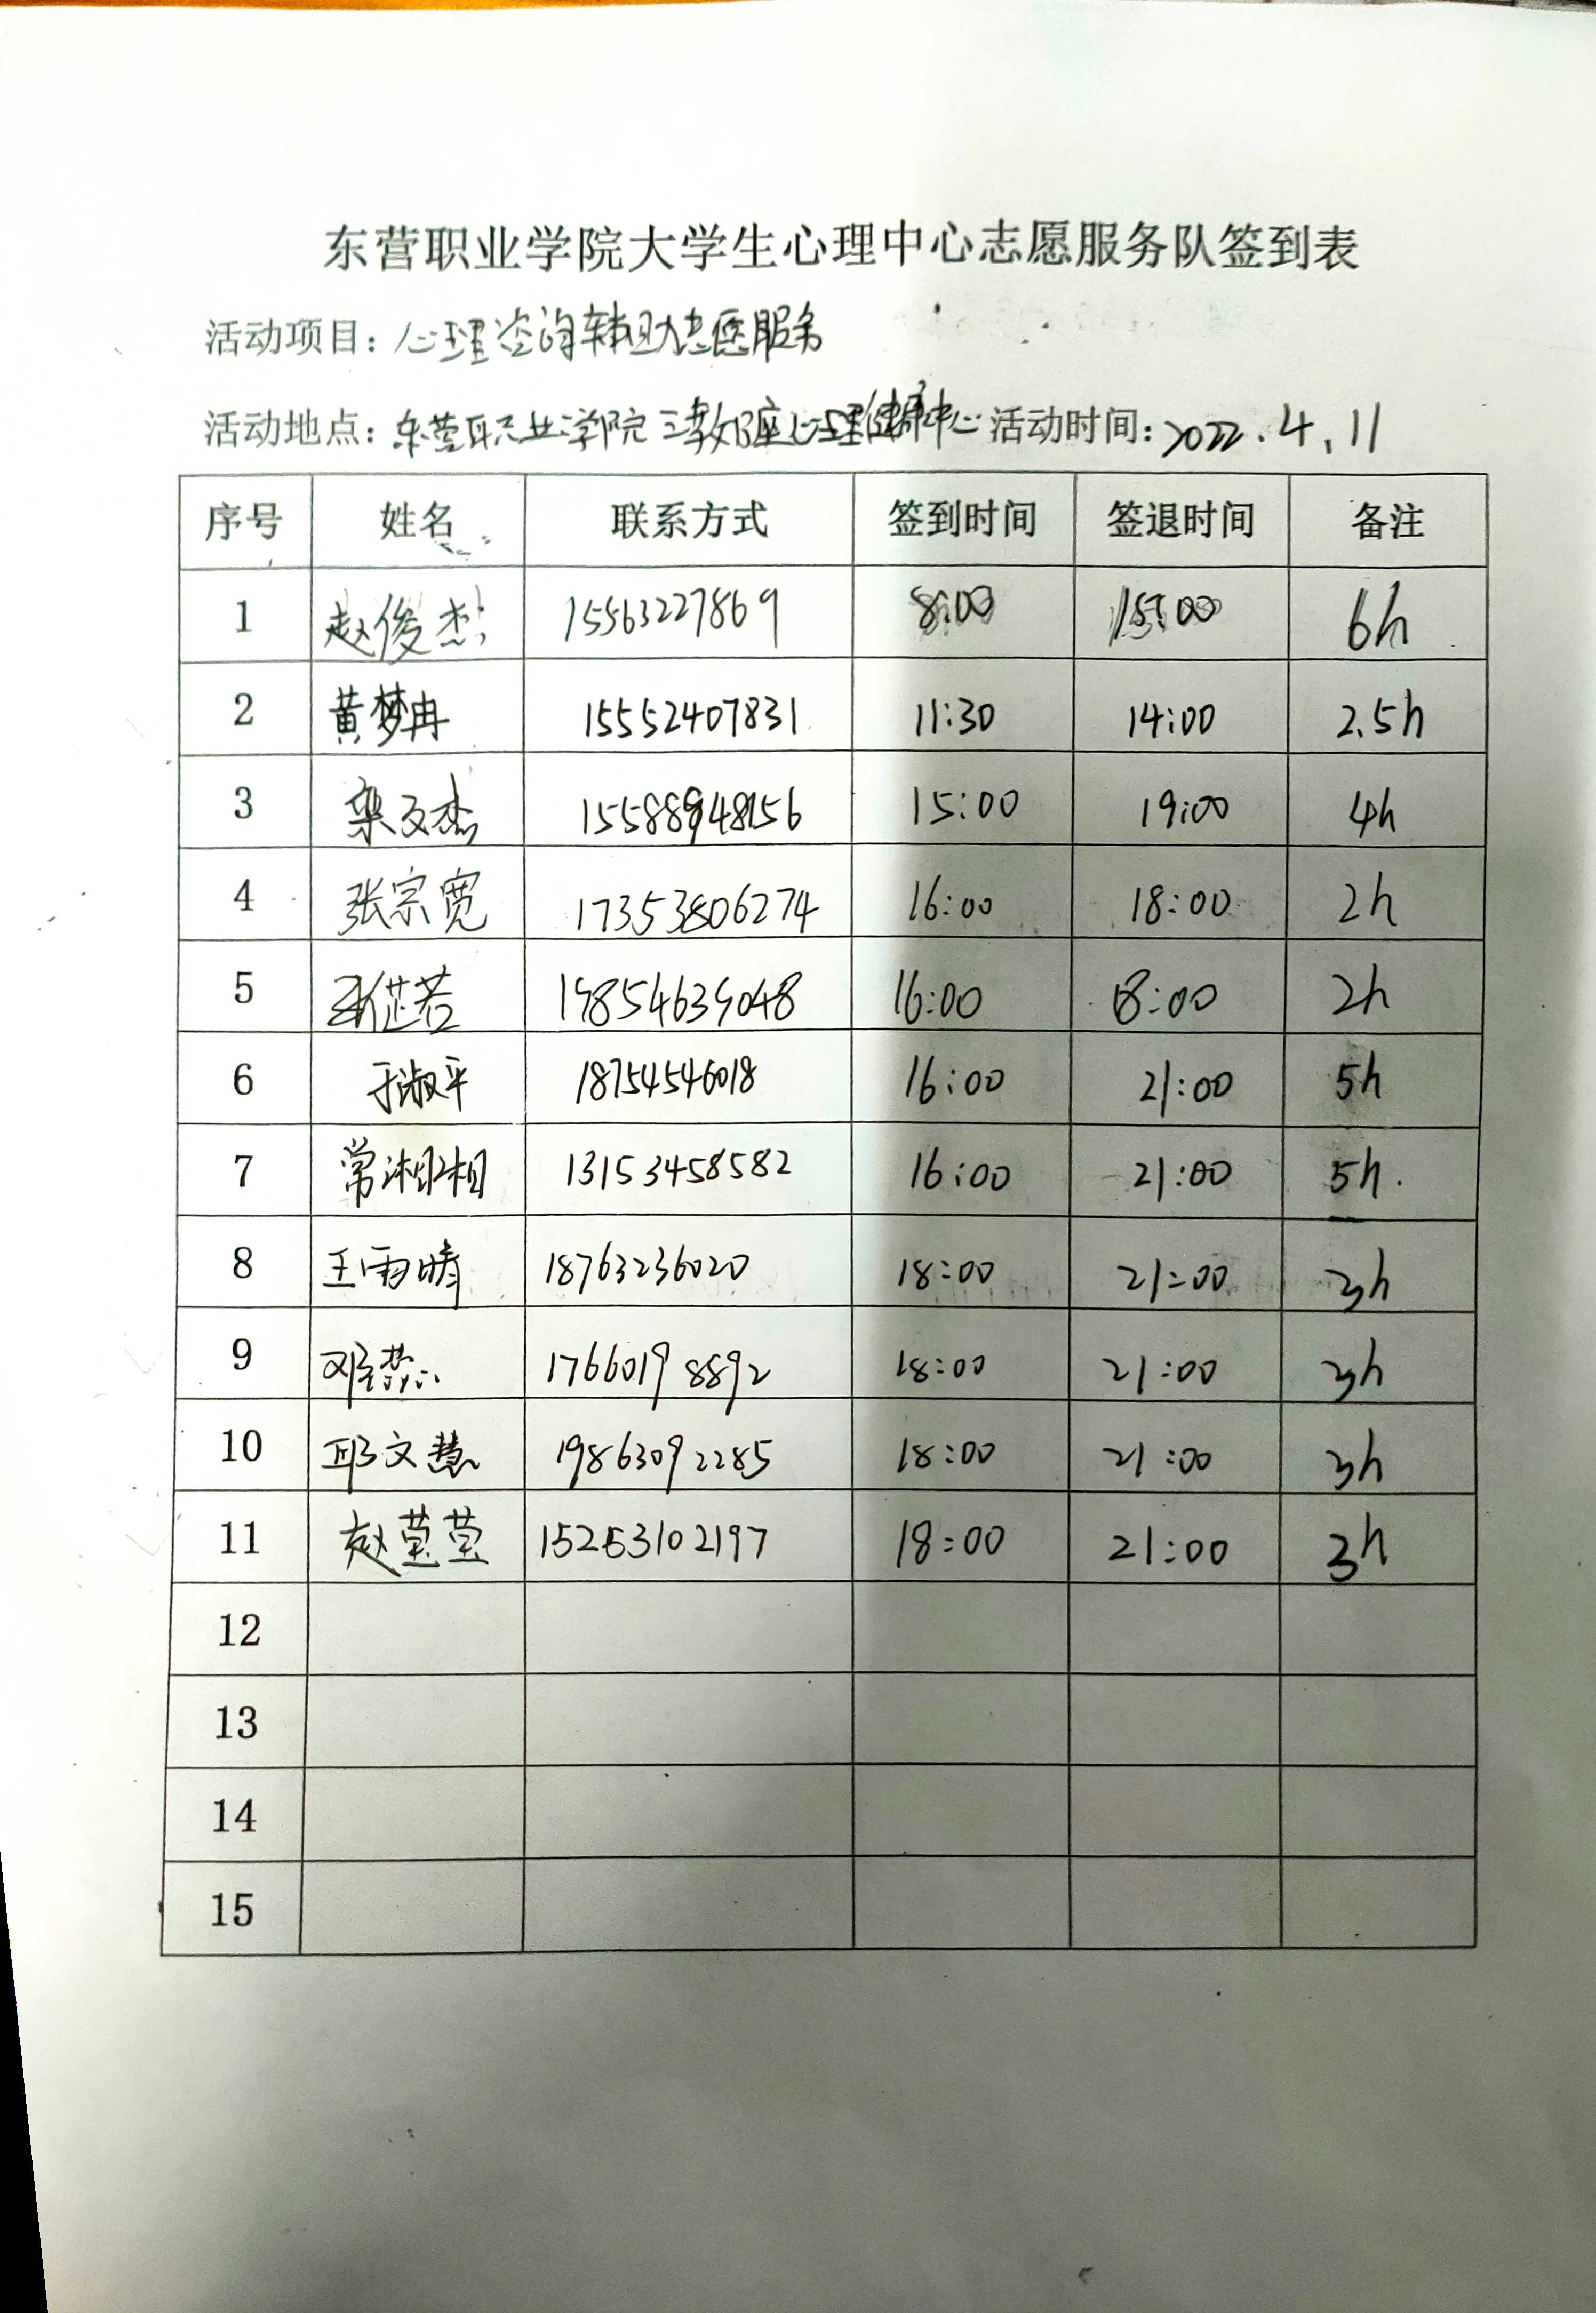 东营职业学院大学生心理中心志愿服务队签到表
活动项目：心理咨询辅助志愿服务
活动地点：东营职业学院三教B座心理健康中心 活动时间：2022.4.11
序号 姓名 联系方式 签到时间 签退时间 备注
1 赵俊杰 15563227869 8:00 15:00 6h
2 黄梦冉 15552407831 11:30 14:00 2.5h
3 栾文杰 15588948156 15:00 19:00 4h
4 张宗宽 17353806274 16:00 18:00 2h
5 张芷若 19854639048 16:00 18:00 2h
6 于淑平 18754546018 16:00 21:00 5h
7 常湘相 13153458582 16:00 21:00 5h.
8 王雨晴 18763236020 18:00 21:00 3h
9 17660198892 18:00 21:00 3h
10 邱文慧 19863092285 18:00 21:00 3h
11 赵莹莹 15253102197 18:00 21:00 3h
12
13
14
15